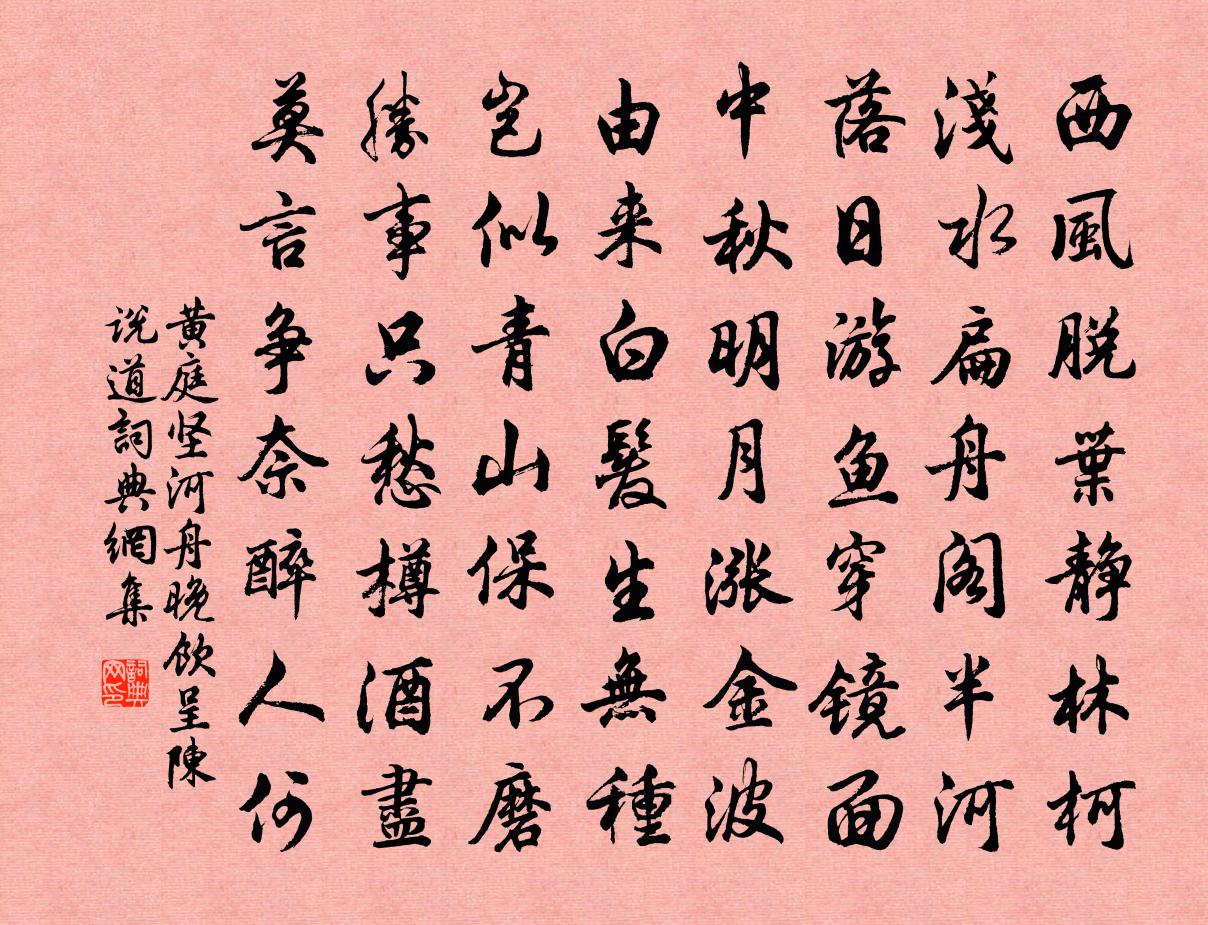 西風脱葉静林柯
淺水扁舟阁半河
落日游魚穿镜面
中秋明月漲金波
由来白髮生無種
岂似青山保不磨
勝事只愁樽酒盡
莫言争奈醉人何
黄庭坚河舟晚飲呈陳
说道詞典網集
詞典
网印